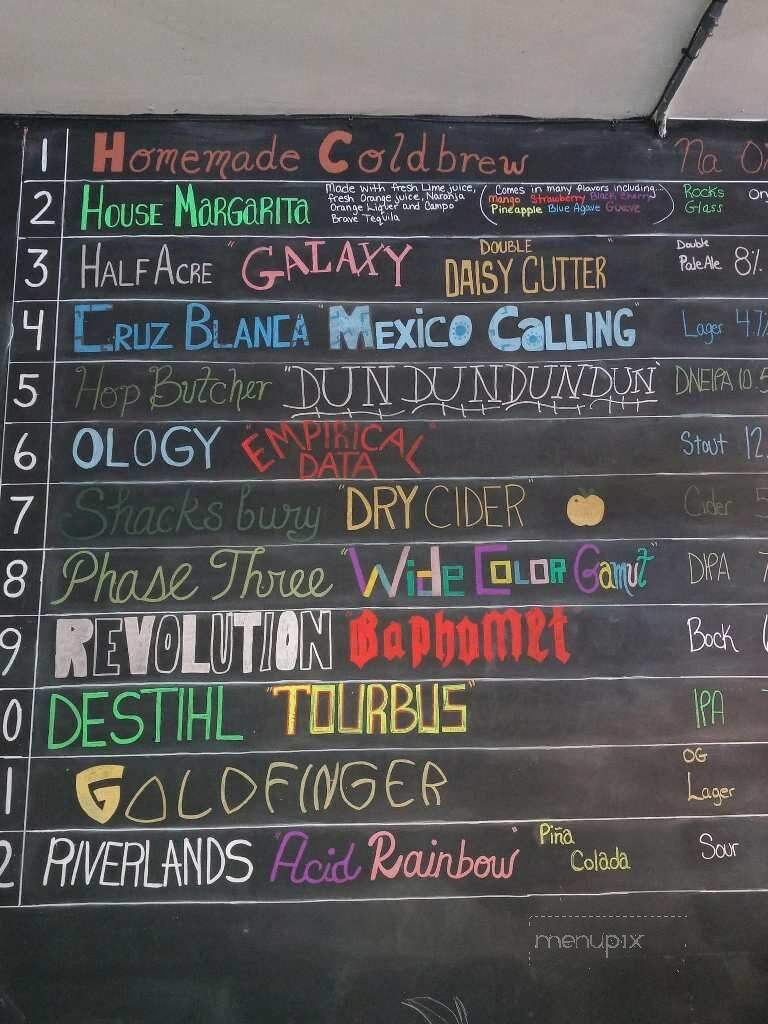 1 Homemade Coldbrew Na
2 House Margarita Made with fresh Lime juice, fresh Orange juice, Naranja Orange Liquer and Campo Brave Tequila (Comes in many flavors including... Mango Strawberry Black Cherry Pineapple Blue Agave Guava) Rocks Glass
3 Half Acre "GALAXY DOUBLE DAISY CUTTER" Double Pale Ale 8%
4 Cruz Blanca "Mexico Calling" Lager 4.7%
5 Hop Butcher "DUN DUN DUN DUN" DNEIPA 10.5
6 OLOGY "EMPIRICAL DATA" Stout 12.
7 Shacksbury "DRY CIDER" Cider 5
8 Phase Three "Wide Color Gamut" DIPA 7
9 REVOLUTION Baphomet Bock
0 DESTIHL "TOURBUS" IPA 7
1 GOLDFINGER OG Lager
2 RIVERLANDS "Acid Rainbow" Piña Colada Sour
menupix